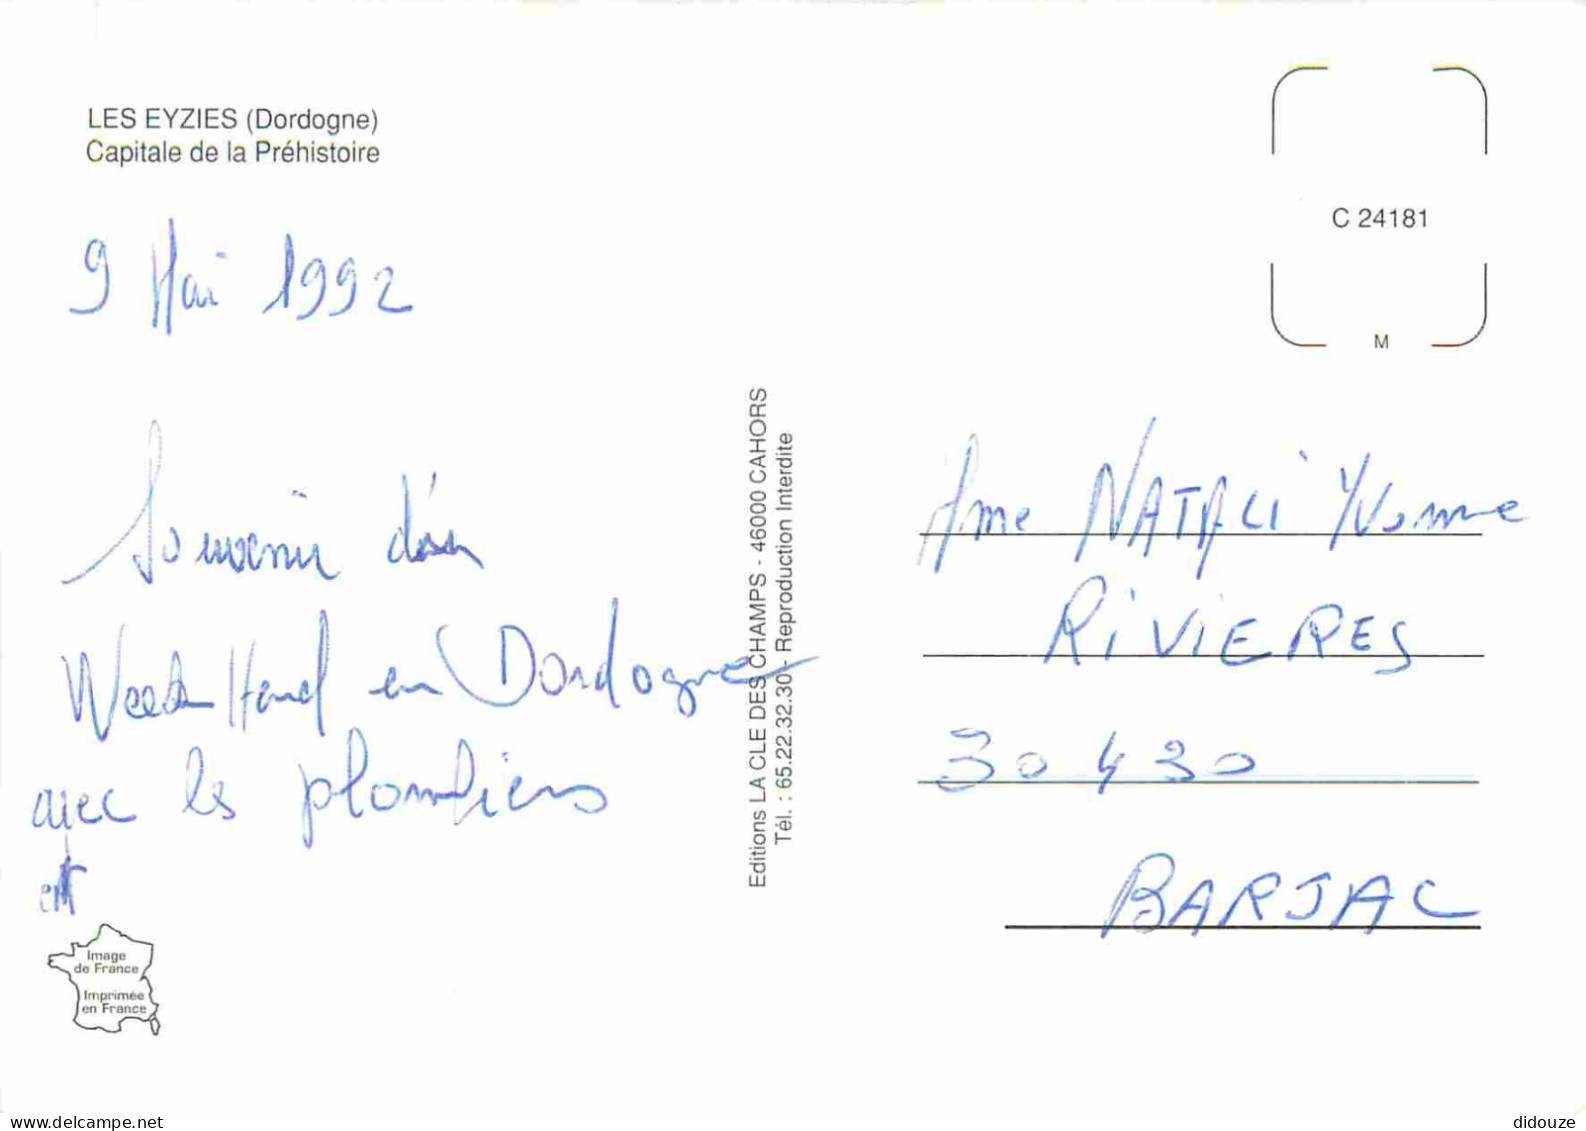 LES EYZIES (Dordogne)
Capitale de la Préhistoire
9 Mai 1992
Souvenir d'un
Week Hend en Dordogne
avec les plombiers
Editions LA CLE DES CHAMPS - 46000 CAHORS
Tél. : 65.22.32.30 - Reproduction Interdite
C 24181
M
Mme NATALI Yvonne
RIVIERES
30430
BARJAC
Image
de France
Imprimée
en France
www.delcampe.net
didouze